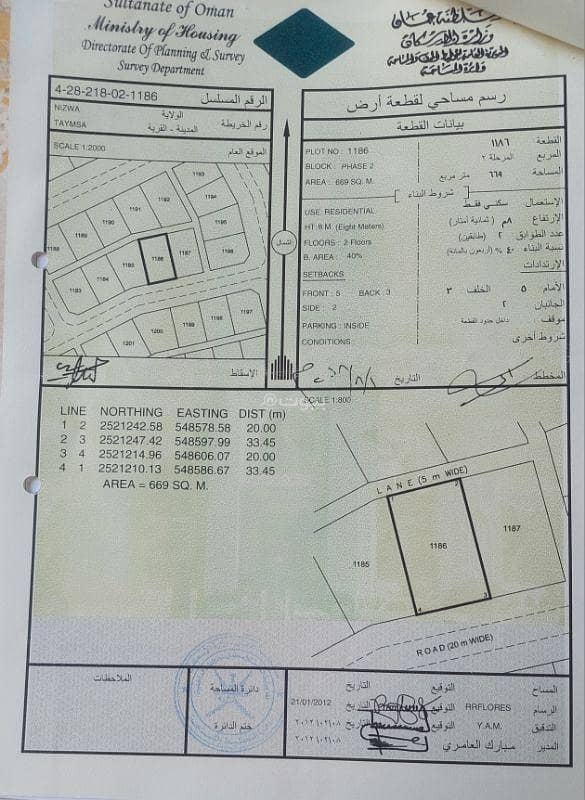 Sultanate of Oman
Ministry of Housing
Directorate Of Planning & Survey
Survey Department
سلطنة عمان
وزارة الإسكان
4-28-218-02-1186
الرقم المسلسل
NIZWA
الولاية
رقم الخريطة
TAYMSA
المدينة - القرية
SCALE 1:2000
الموقع العام
1193
1192
1194
1191
1190
1195
1189
1188
1196
1186
1187
1198
1185
1184
1183
1197
1198
1199
1200
1201
الاسقاط
الشمال
رسم مساحي لقطعة أرض
بيانات القطعة
PLOT NO : 1186
القطعة ١١٨٦
BLOCK : PHASE 2
المربع المرحلة ٢
AREA : 669 SQ. M.
المساحة ٦٦٩ متر مربع
شروط البناء
USE: RESIDENTIAL
الإستعمال سكني فقط
HT: 8 M. (Eight Meters)
الإرتفاع ٨م ( ثمانية أمتار)
FLOORS : 2 Floors
عدد الطوابق ٢ (طابقين)
B. AREA : 40%
نسبة البناء ٤٠ % (أربعون بالمائة)
SETBACKS
الإرتدادات
FRONT : 5 BACK : 3
الأمام ٥ الخلف ٣
SIDE : 2
الجانبان ٢
PARKING : INSIDE
موقف داخل حدود القطعة
CONDITIONS
شروط أخرى
المخطط
التاريخ
SCALE 1:800
LINE NORTHING EASTING DIST (m)
1 2 2521242.58 548578.58 20.00
2 3 2521247.42 548597.99 33.45
3 4 2521214.96 548606.07 20.00
4 1 2521210.13 548586.67 33.45
AREA = 669 SQ. M.
LANE (5 m WIDE)
1
2
1187
1186
1185
3
4
ROAD (20 m WIDE)
الملاحظات
دائرة المساحة
ختم الدائرة
المساح
التوقيع
التاريخ
الرسام
RRFLORES
التوقيع
التاريخ
21/01/2012
التدقيق
Y.A.M.
التوقيع
التاريخ
المدير
مبارك العامري